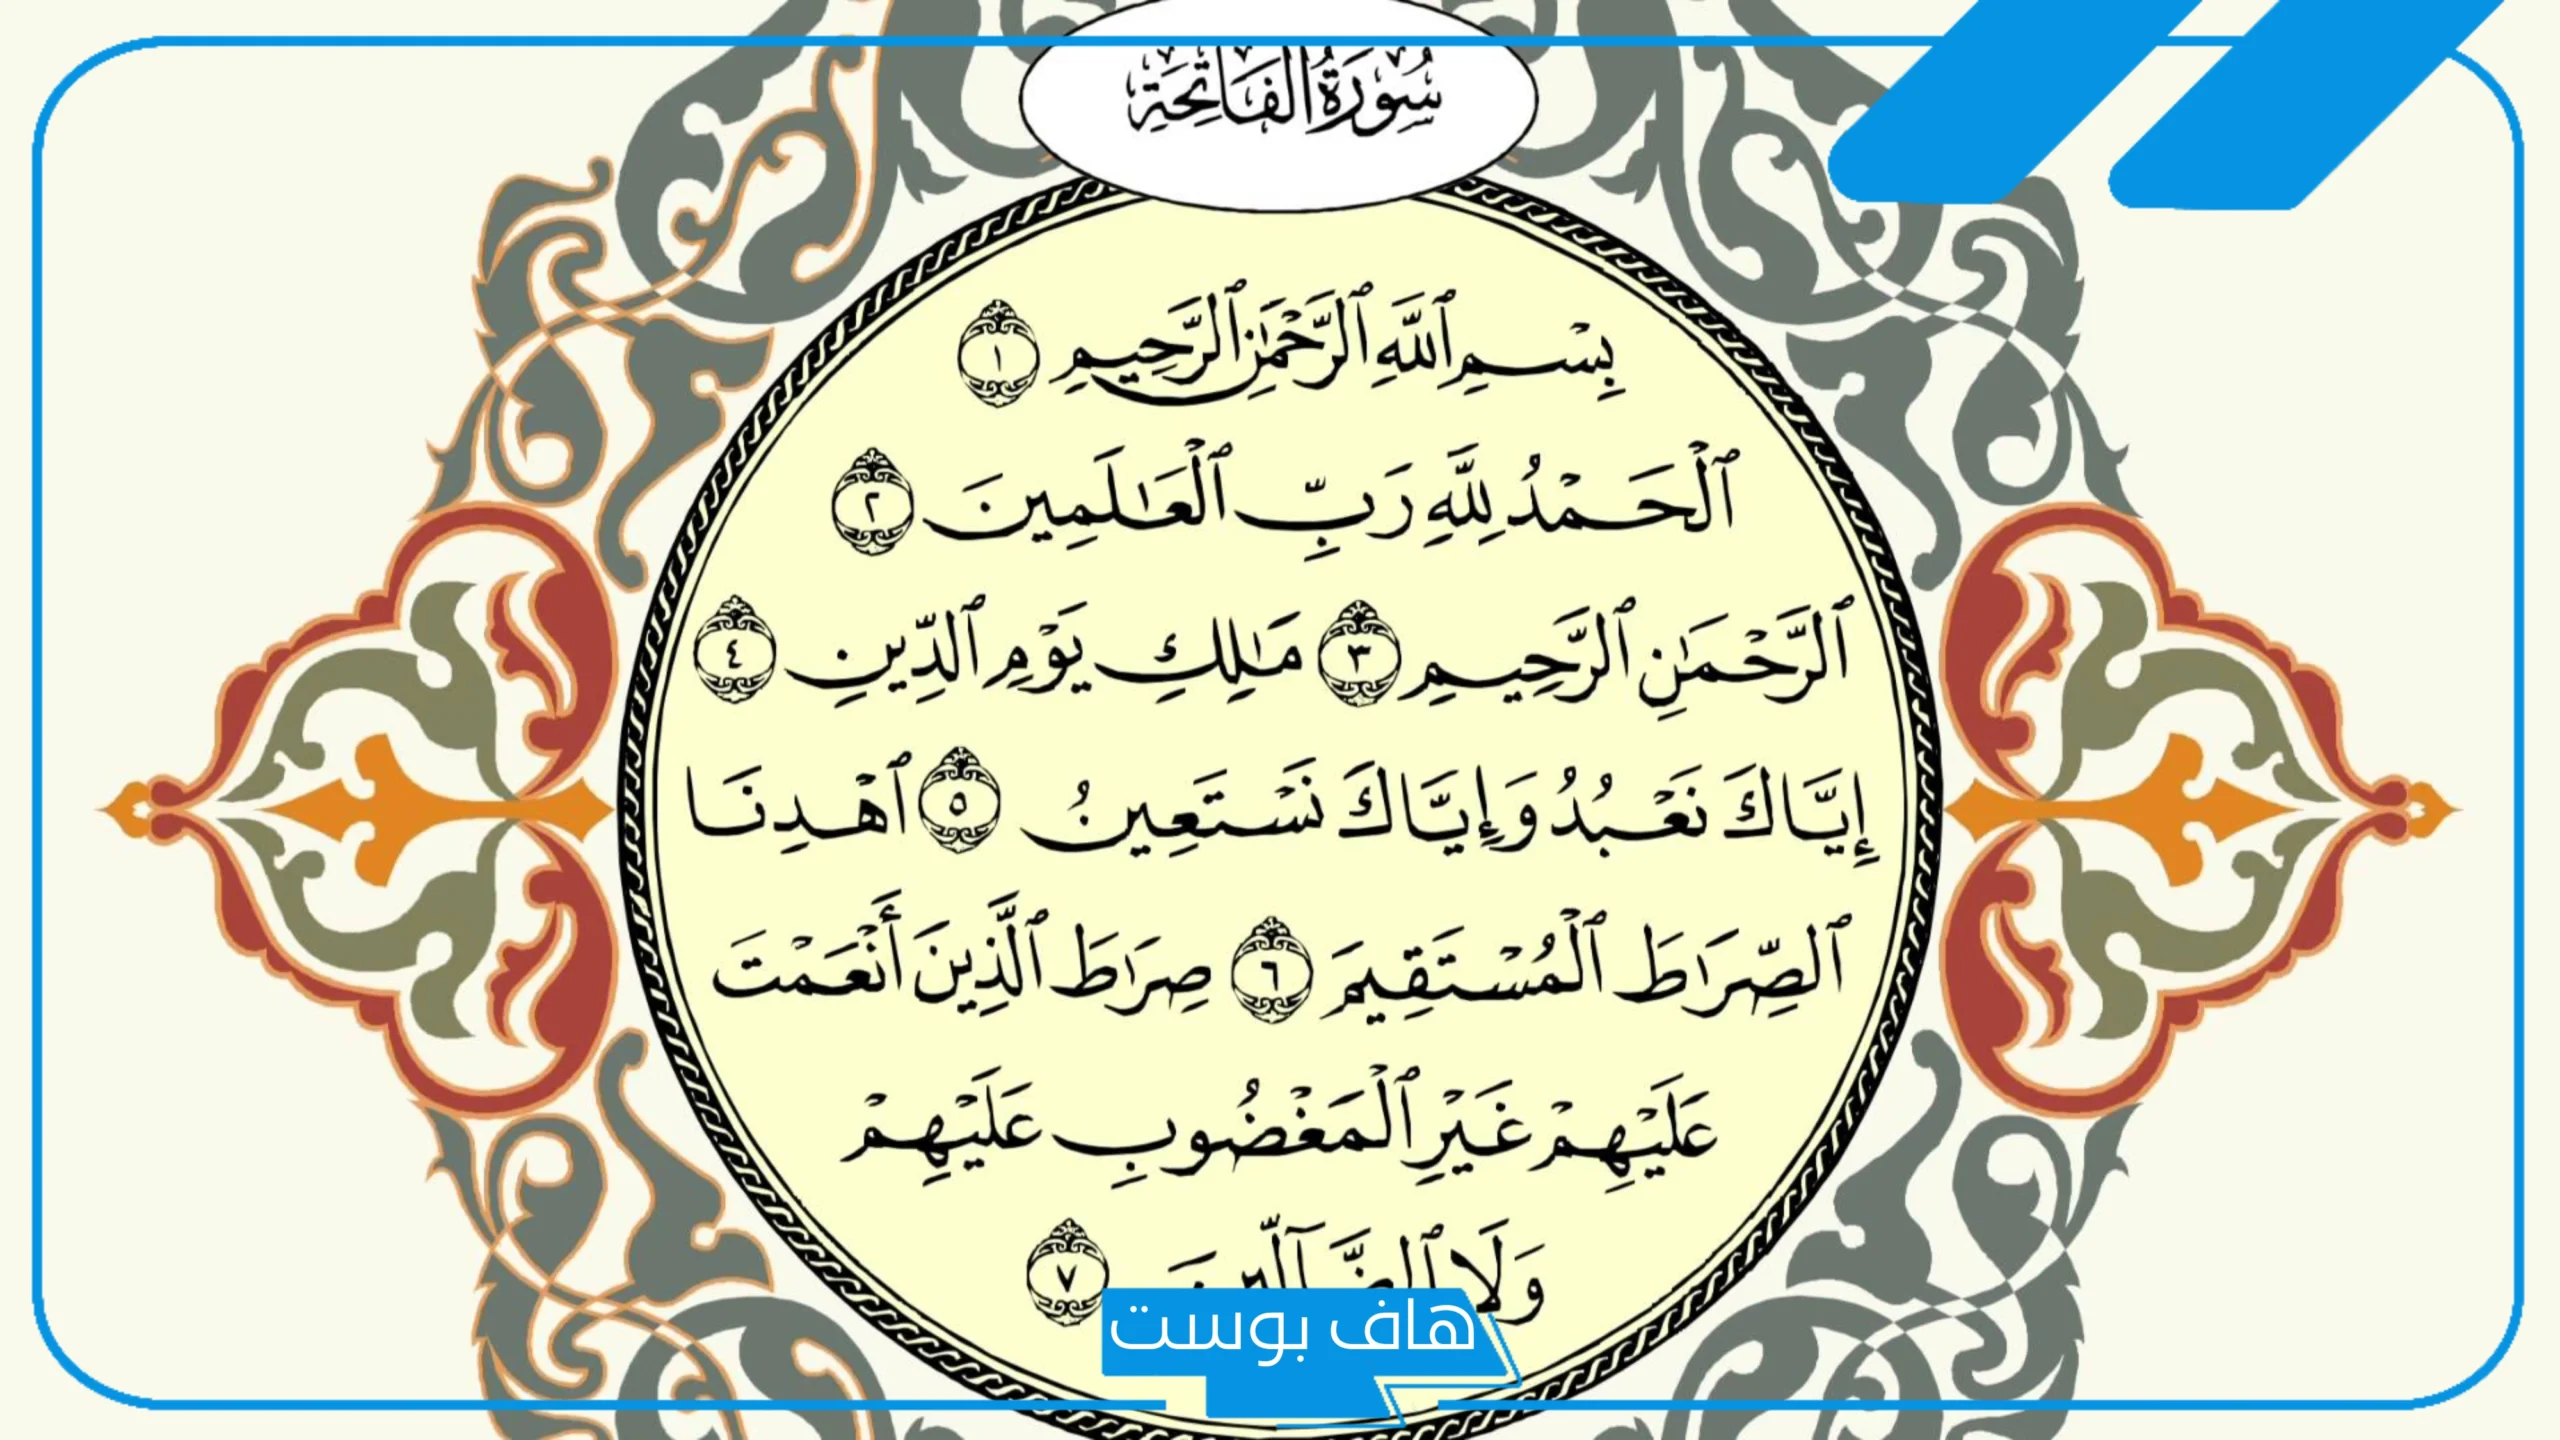 سُورَةُ الْفَاتِحَةِ
بِسْمِ ٱللَّهِ ٱلرَّحْمَٰنِ ٱلرَّحِيمِ ١
ٱلْحَمْدُ لِلَّهِ رَبِّ ٱلْعَٰلَمِينَ ٢
ٱلرَّحْمَٰنِ ٱلرَّحِيمِ ٣ مَٰلِكِ يَوْمِ ٱلدِّينِ ٤
إِيَّاكَ نَعْبُدُ وَإِيَّاكَ نَسْتَعِينُ ٥ ٱهْدِنَا
ٱلصِّرَٰطَ ٱلْمُسْتَقِيمَ ٦ صِرَٰطَ ٱلَّذِينَ أَنْعَمْتَ
عَلَيْهِمْ غَيْرِ ٱلْمَغْضُوبِ عَلَيْهِمْ
وَلَا ٱلضَّآلِّينَ ٧
هاف بوست